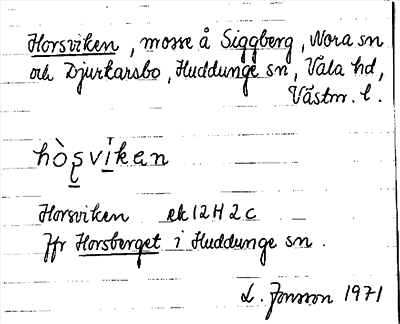 Horsviken, mosse å Siggberg, Nora sn
och Djurkarsbo, Huddunge sn, Våla hd,
Västm. l.
hòʂviken
Horsviken ek 12 H 2 c
Jfr Horsberget i Huddunge sn.
L. Jonsson 1971